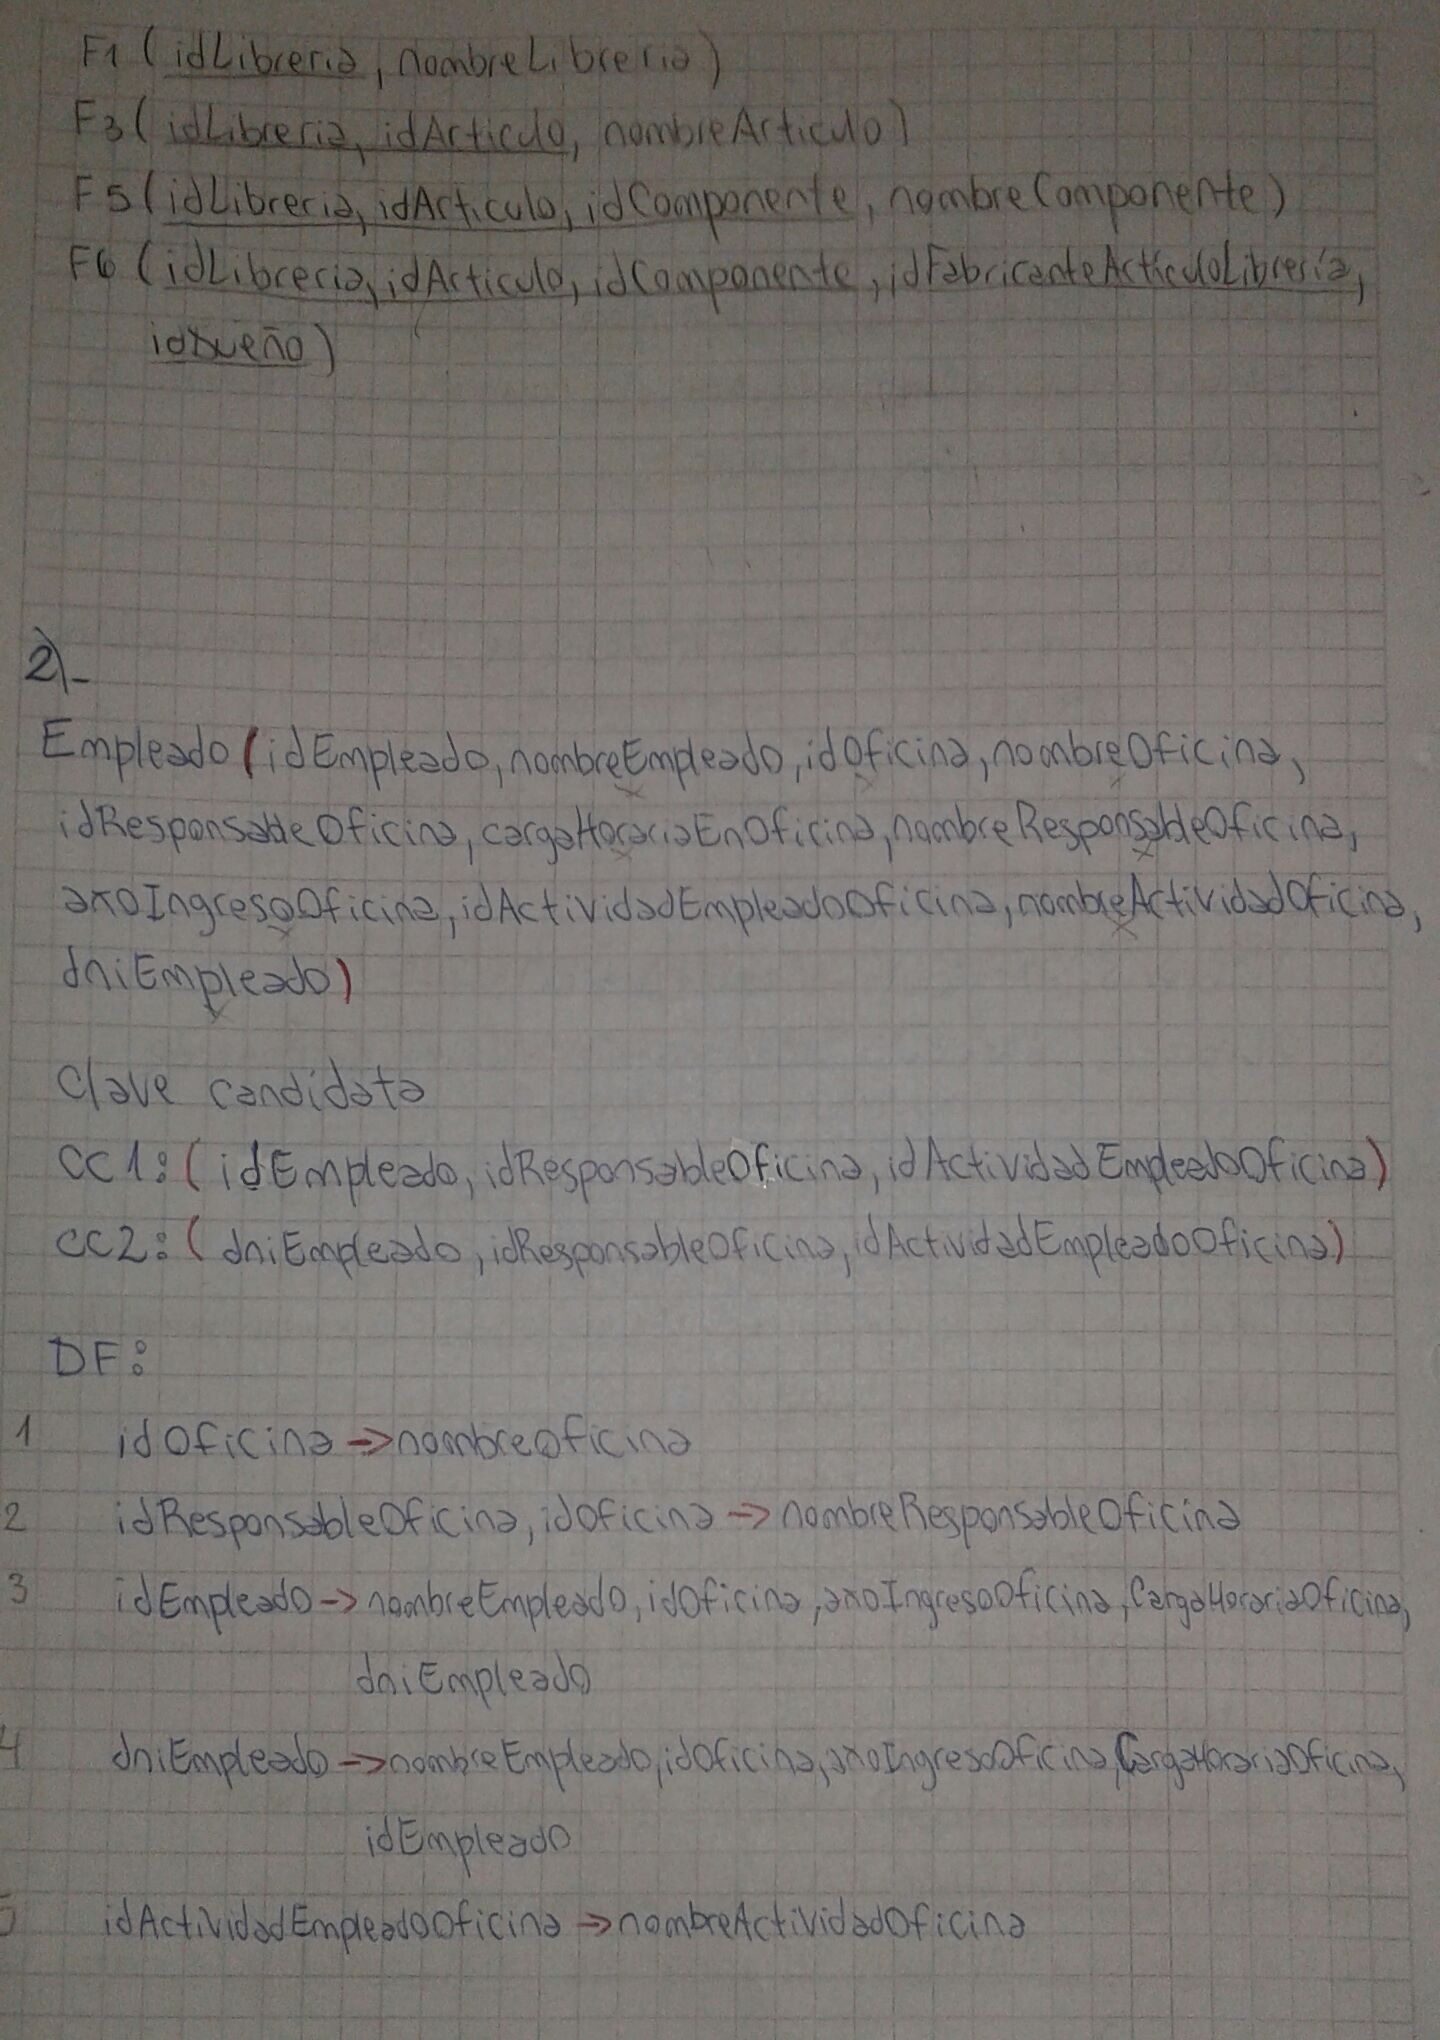 F1 (idLibreria, nombreLibreria)
F3 (idLibreria, idArticulo, nombreArticulo)
F5 (idLibreria, idArticulo, idComponente, nombreComponente)
F6 (idLibreria, idArticulo, idComponente, idFabricanteArticuloLibrería,
idDueño)
2)-
Empleado (idEmpleado, nombreEmpleado, idOficina, nombreOficina,
idResponsableOficina, cargaHorariaEnOficina, nombreResponsableOficina,
añoIngresoOficina, idActividadEmpleadoOficina, nombreActividadOficina,
dniEmpleado)
Clave candidata
CC1: (idEmpleado, idResponsableOficina, idActividadEmpleadoOficina)
CC2: (dniEmpleado, idResponsableOficina, idActividadEmpleadoOficina)
DF:
1 idOficina -> nombreOficina
2 idResponsableOficina, idOficina -> nombreResponsableOficina
3 idEmpleado -> nombreEmpleado, idOficina, añoIngresoOficina, CargaHorariaOficina,
dniEmpleado
4 dniEmpleado -> nombreEmpleado, idOficina, añoIngresoOficina, CargaHorariaOficina,
idEmpleado
5 idActividadEmpleadoOficina -> nombreActividadOficina